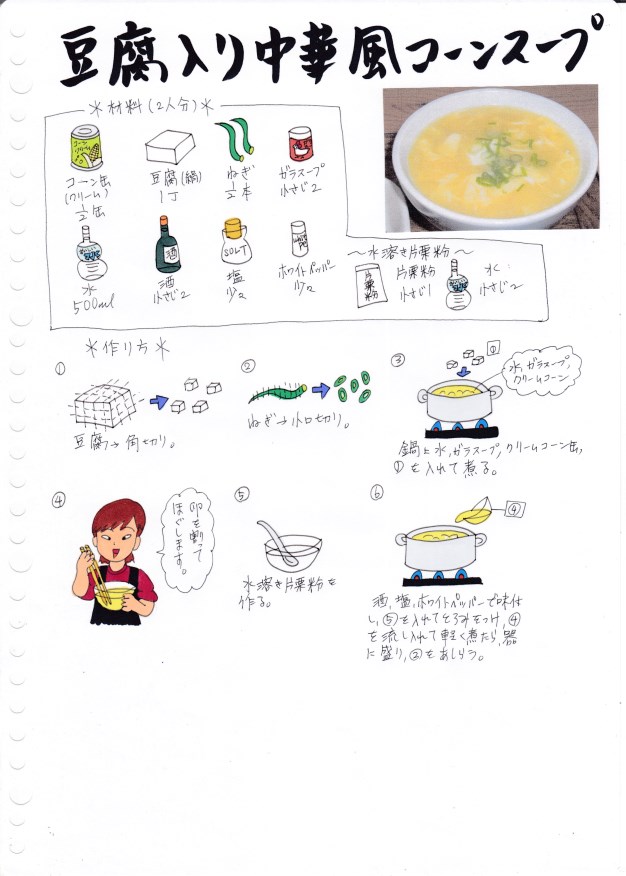 豆腐入り中華風コーンスープ
＊材料(2人分)＊
コーン
クリーム
コーン缶
(クリーム)
1/2缶
豆腐(絹)
1丁
ねぎ
1/2本
ガラスープ
小さじ2
水
500ml
酒
酒
小さじ2
SOLT
塩
少々
ホワイトペッパー
少々
〜水溶き片栗粉〜
片栗粉
片栗粉
小さじ1
水
小さじ2
＊作り方＊
①
豆腐→角切り。
②
ねぎ→小口切り。
③
①
水,ガラスープ,
クリームコーン
鍋に水,ガラスープ,クリームコーン缶,
①を入れて煮る。
④
卵を割って
ほぐします。
⑤
水溶き片栗粉を
作る。
⑥
④
酒,塩,ホワイトペッパーで味付
し,⑤を入れてとろみをつけ,④
を流し入れて軽く煮たら,器
に盛り,②をあしらう。